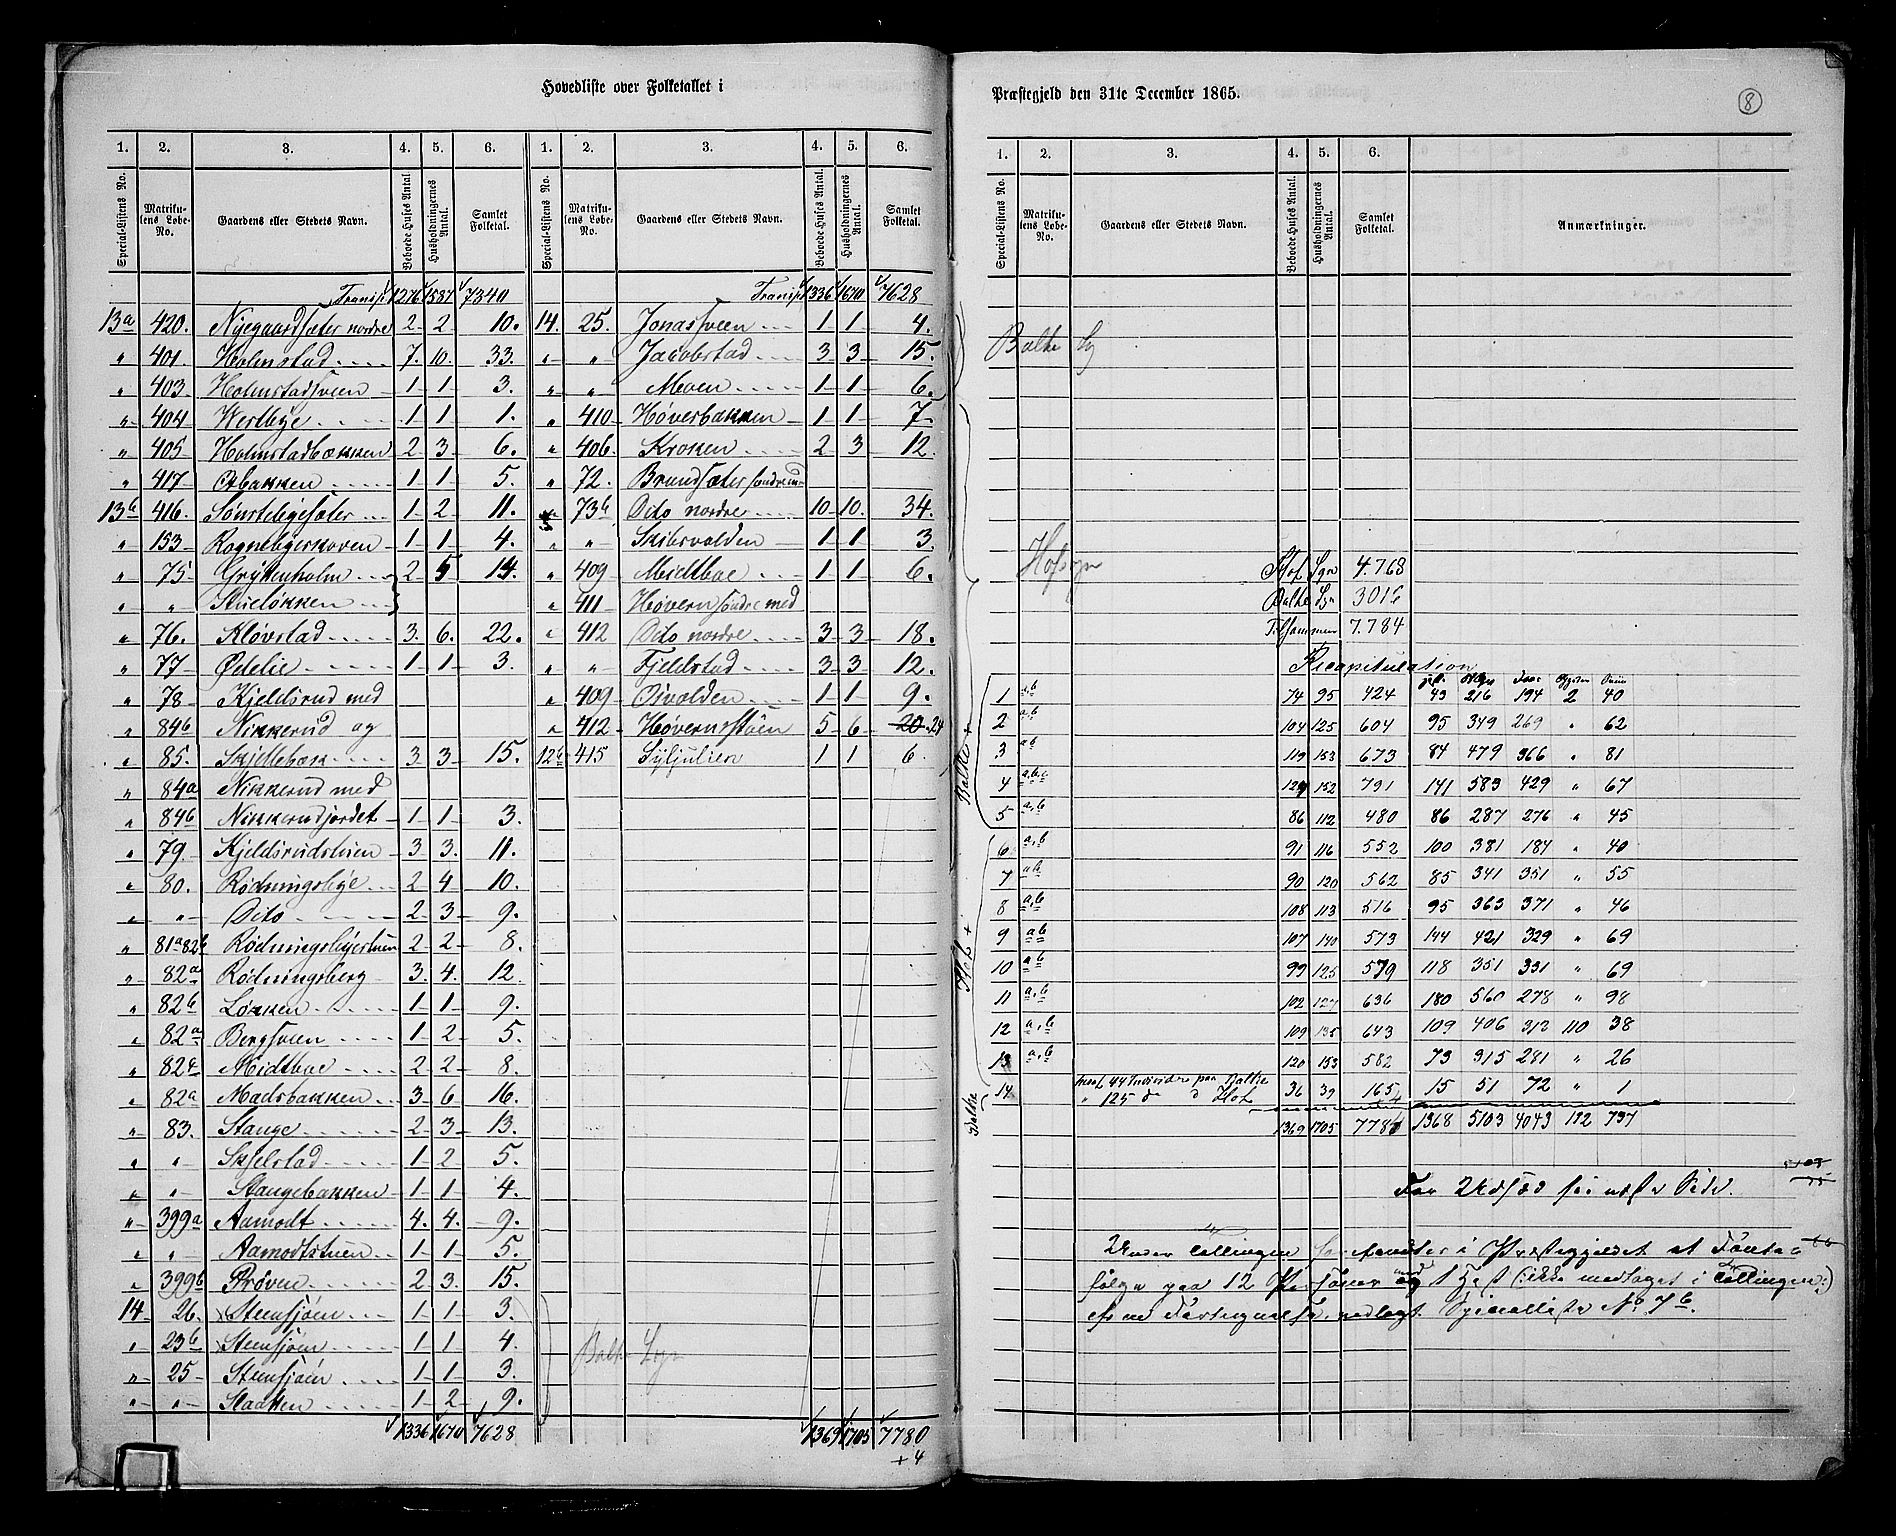 Hovedliste over Folketallet i
1. 2. 3. 4. 5. 6. 1. 2. 3. 4. 5. 6.
Special-Listens No. Matrikulens Løbe-No. Gaardens eller Stedets Navn. Beboede Huses Antal. Husholdningernes Antal. Samlet Folketal. Special-Listens No. Matrikulens Løbe-No. Gaardens eller Stedets Navn. Beboede Huses Antal. Husholdningernes Antal. Samlet Folketal.
Transp. 1276 1537 7340
13a 420. Nyegaardsæter nordre 2 2 10.
" 401. Holmstad 7. 10. 33.
" 403 Holmstadsveen 1 1 3.
" 404 Westbye 1 1 1.
" 405 Holmstadbækken 2 3 6.
" 417 Øbakken 1 1 5.
13b 416. Sønstebyesæter 1 2 11.
" 153 Rognebyeskoven 1 1 4.
" 75 Grythenholm 2 5 14.
" " Stueløkken
" 76. Kløvstad 3. 6. 22.
" 77 Ødelie 1 1 3.
" 78 Kjeldsrud med
" 84b Nikkerud og
" 85. Skjellebæk 3 3 15.
" 84a Nikkerud med
" 84b Nikkerudjordet 1 1 3.
" 79. Kjeldsrudstuen 3 3. 11.
" 80. Rødningsbye 2 4 10.
" " Dito 2 3 9.
" 81a 82b Rødningsbyestuen 2 2 8.
" 82a Rødningsberg 3. 4. 12
" 82b Løkken 1 1 9.
" 82a Bergsveen 1 2 5.
" 82c Midtboe 2 2 8.
" 82a Madsbakken 3 6 16.
" 83. Stange 2 3 13.
" " Skjelstad 1 2 5.
" " Stangebakken 1 1 4.
" 399a Aamodt 4. 4. 9.
" " Aamodtstuen 1 1 5.
" 399b Prøven 2 3. 15.
14 26. Steensjøen 1 1 3.
" 23b Steensjøen 1 1 4.
" 25 Steensjøen 1 1 3.
" " Staaken 1 2 9.
1336 1670 7628
Transp. 1336 1670 7628
14. 25. Jonassveen 1 1 4.
" " Jacobstad 3 3 15.
" " Moen 1 1 6.
" 410 Høverbakken 1 1 7
" 406 Kroken 2 3 12.
" 72. Brandsæter søndre m
" 73b Dito nordre 10 10. 34.
" " Skibsvolden 1 1 3.
" 409 Midtboe 1 1 6.
" 411 Høvern søndre med
" 412 Dito nordre 3 3 18.
" " Fjeldstad 3 3 12.
" 409 Osvolden 1 1 9.
" 412 Høvernsstøen 5 6 20. 24
12b 415 Syljulien 1 1 6.
Balke Sgn
1369 1705 7780
+ 4
Præstegjeld den 31te December 1865.
8
1. 2. 3. 4. 5. 6.
Special-Listens No. Matrikulens Løbe-No. Gaardens eller Stedets Navn. Beboede Huses Antal. Husholdningernes Antal. Samlet Folketal. Anmærkninger.
Balke Sg
Hofsogn
Hof Sgn 4.768
Balke Sgn 3016
Tilsammen 7.784
Recapitulation
Balke +
Hof +
Balke
1 a,b 74 95 424 43 216 194 2 40
2 a,b 104 125 604 95 349 269 " 62
3 a,b 119 153 673 84 479 366 " 81
4 a,b,c 152 791 141 583 429 " 67
5 a,b 86 112 480 86 287 276 " 45
6 a,b 91 116 552 100 381 184 " 40
7 a,b 90 120 562 85 341 351 " 55
8 a,b 108 113 516 95 363 371 " 46
9 a,b 107 140 573 144 421 329 " 69
10 a,b 99 125 579 118 351 331 " 69
11 a,b 102 127 636 180 560 278 " 98
12 a,b 109 135 643 109 406 312 110 38
13 a,b 120 153 582 73 315 281 " 26
14 hvoraf 44 Individer paa Balke 36 39 165 15 51 72 " 1
" 125 do d Hof
1369 1705 7784 1368 5103 4043 112 737
For Udsæd see næste Side.
Under Tællingen foretandtes i Præstegjeldet et Tater-
følge paa 12 Personer med 1 Hest (ikke medtaget i Tællingen:)
No 7b.